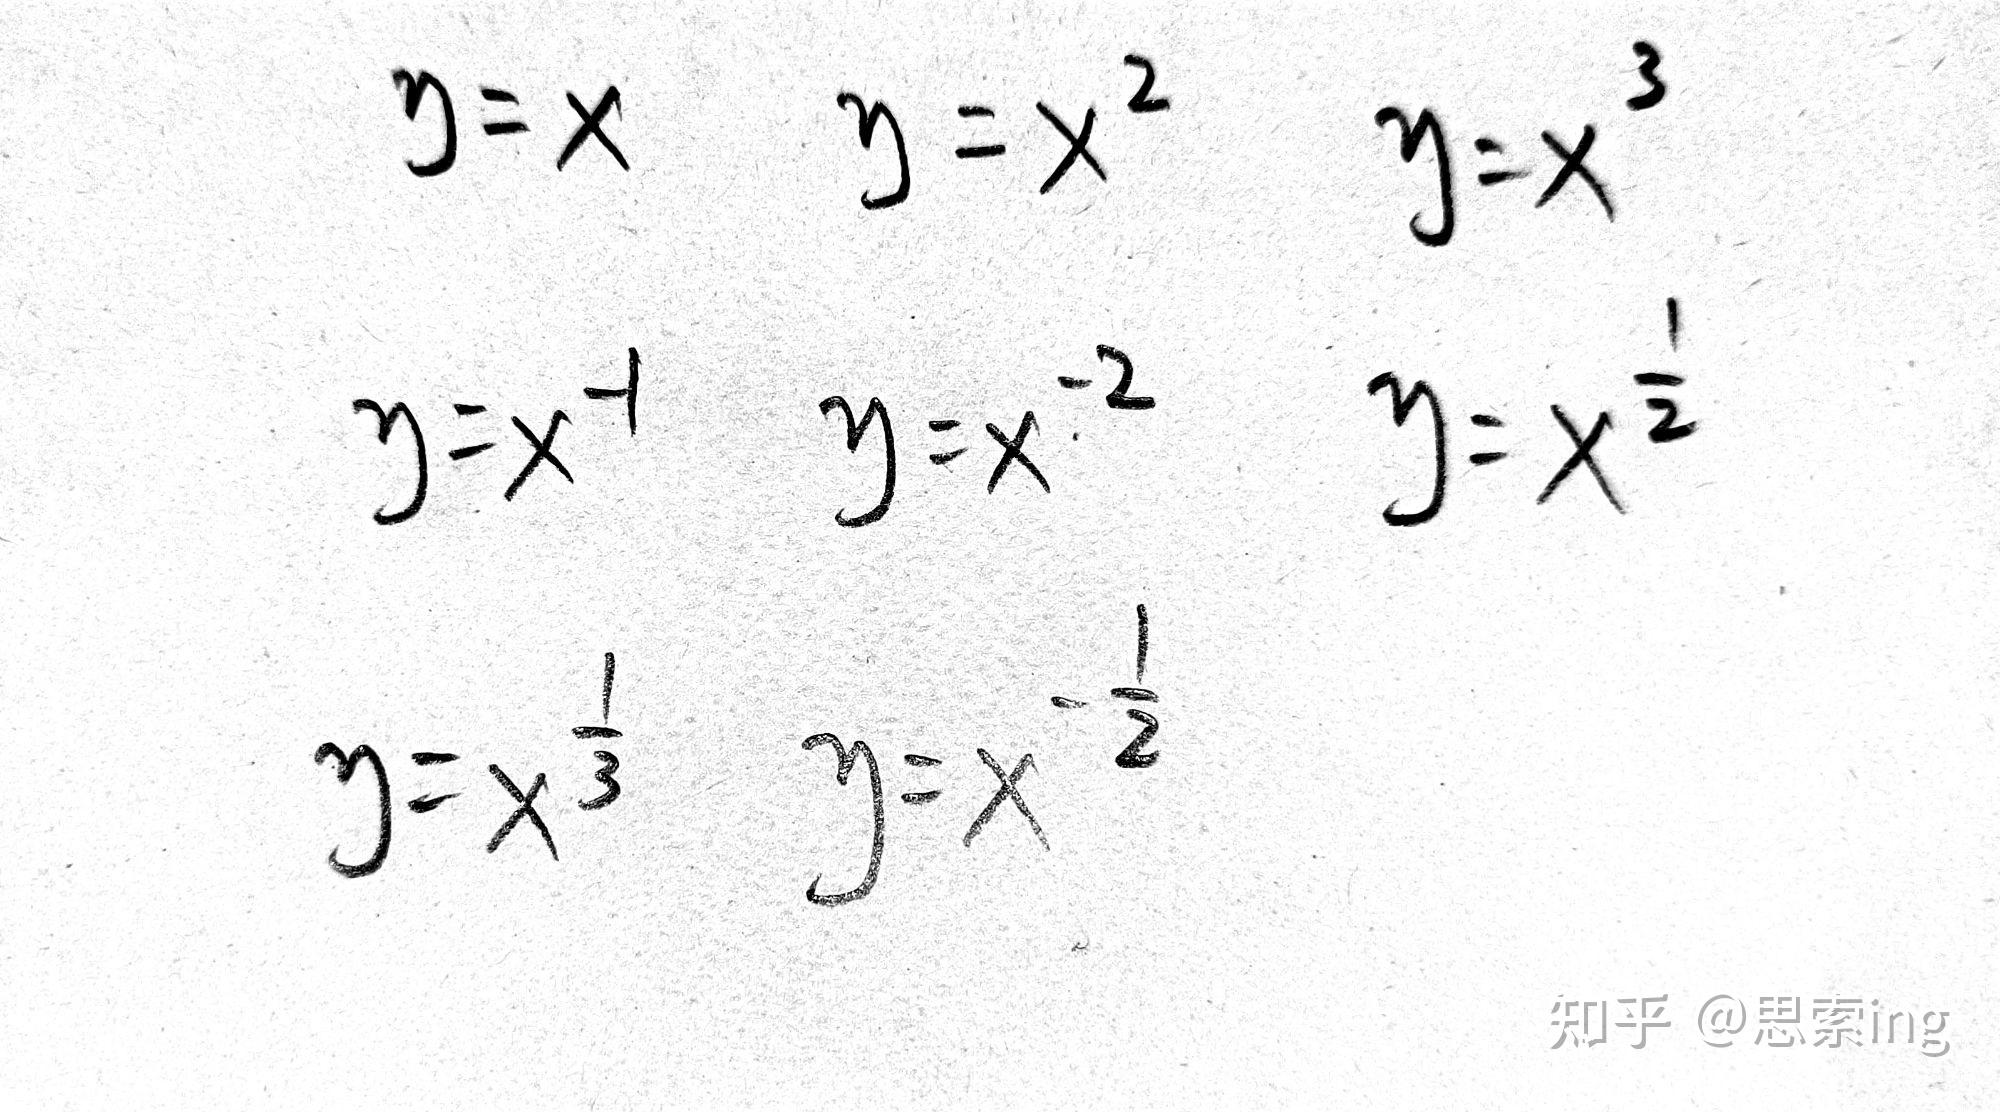 y=x y=x² y=x³
y=x⁻¹ y=x⁻² y=x^{\frac{1}{2}}
y=x^{\frac{1}{3}} y=x^{-\frac{1}{2}}
知乎 @思索ing